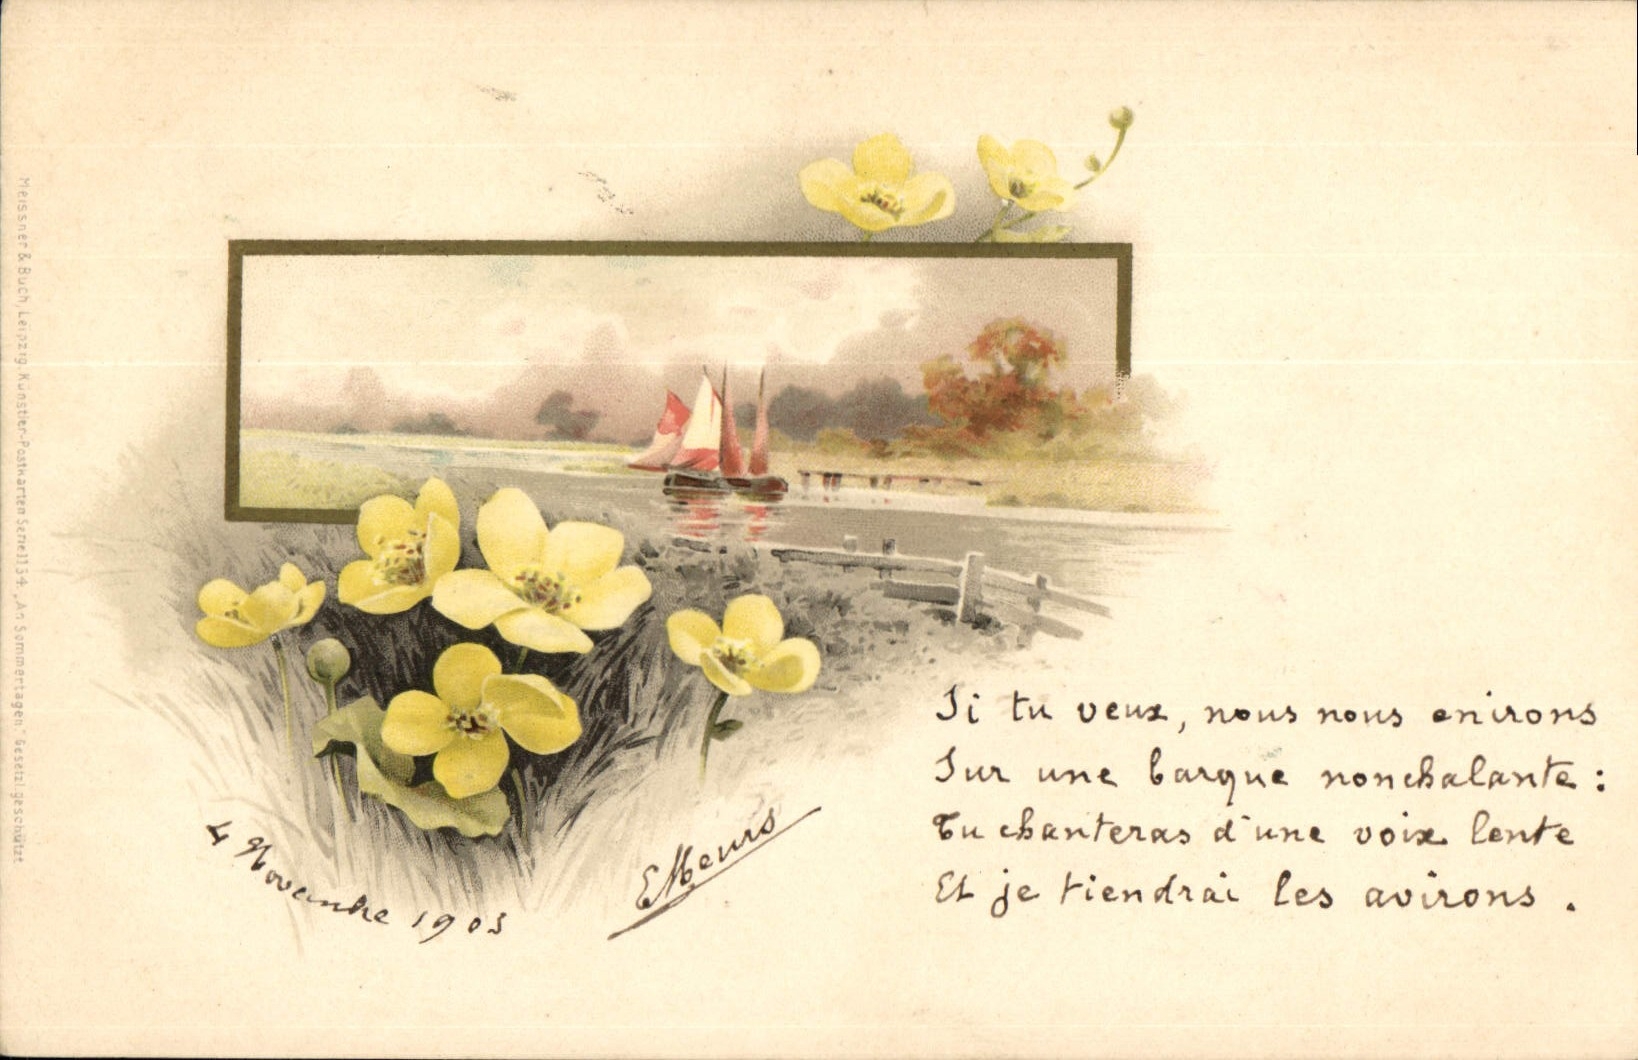 Meissner & Buch, Leipzig, Künstler-Postkarten Serie 1134 „An Sommertagen." Gesetzl. geschützt
Si tu veux, nous nous enirons
Sur une barque nonchalante :
Tu chanteras d'une voix lente
Et je tiendrai les avirons .
4 Novembre 1903
EMeurs